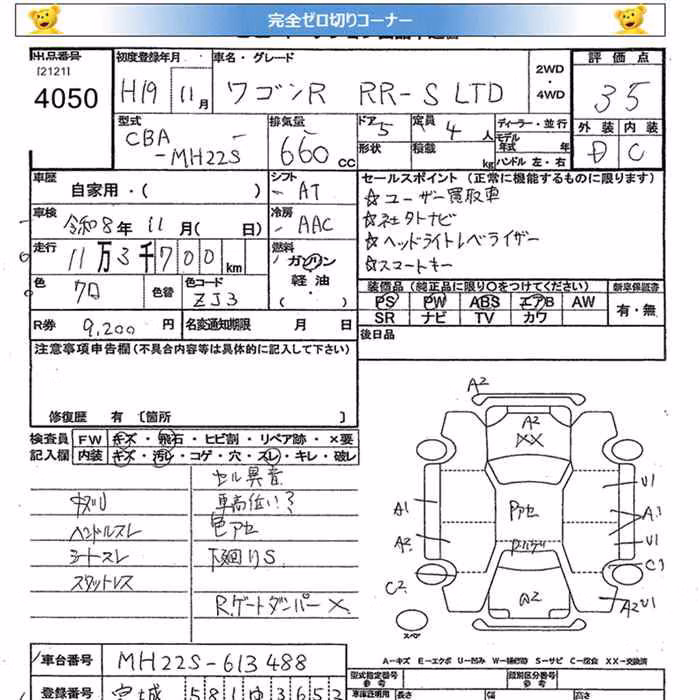 完全ゼロ切りコーナー
出品番号
(2121)
4050
初度登録年月
H19 11月
車名・グレード
ワゴンR RR-S LTD
2WD
・
4WD
評価点
35
外装 内装
D C
型式
CBA
-MH22S
排気量
660 CC
ドア
5
定員
4 人
ディーラー・並行
モデル
年式 年
形状
積載
kg
ハンドル 左・右
車歴
自家用・( )
シフト
AT
セールスポイント (正常に機能するものに限ります)
☆ユーザー買取車
☆社外ナビ
☆ヘッドライトレベライザー
☆スマートキー
車検
令和8年 11月( 日)
冷房
AAC
走行
11万3千700km
燃料
ガソリン
軽油
( ・ )
色
クロ
色替
色コード
ZJ3
装備品 (純正品に限り○をつけてください)
新車保証書
PS PW ABS エアB AW
有・無
SR ナビ TV カワ
R券
9,200 円
名変通知期限 月 日
後日品
注意事項申告欄 (不具合内容等は具体的に記入して下さい)
修復歴 有 〔箇所 〕
検査員
記入欄
FW キズ・飛石・ヒビ割・リペア跡・×要
内装 キズ・汚レ・コゲ・穴・スレ・キレ・破レ
セル異音
車高低い?
ハンドルスレ
色アセ
シートスレ
下廻りS
スタットレス
R.ゲートダンパー×
A2
A2
XX
U1
A1
A1
Pアセ
A2
U1
C1
C2
A2
A2U1
スペア
車台番号
MH22S-613488
A-キズ E-エクボ U-凹み W-補修跡 S-サビ C-腐食 XX-交換済
登録番号
宮城 581ゆ3652
型式指定番号
参考
類別区分番号
参考
車庫証明用
長さ
幅
高さ